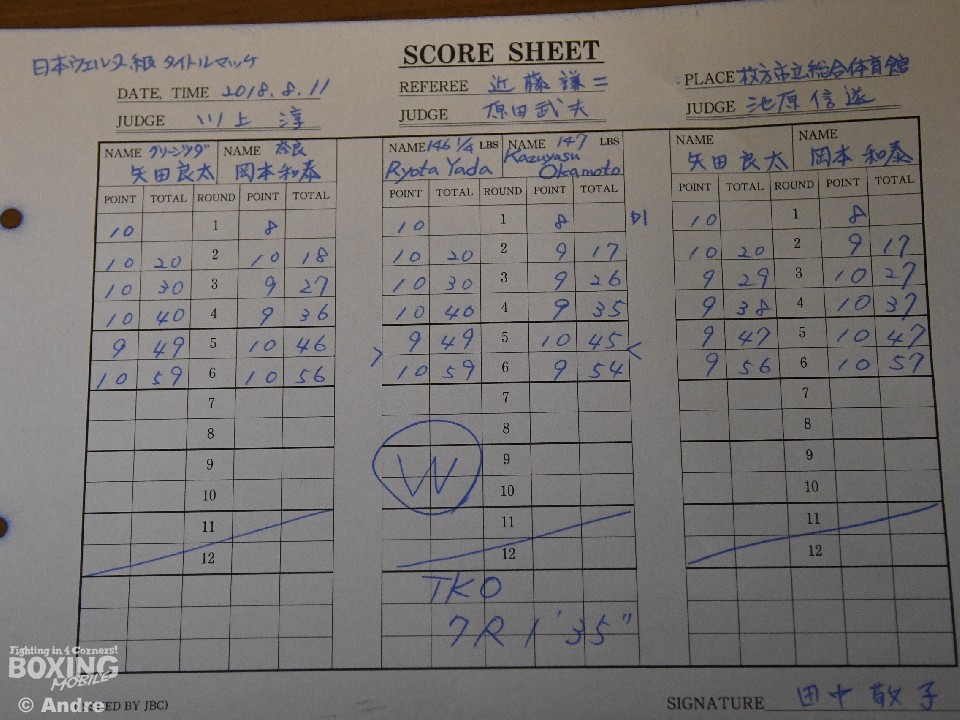 SCORE SHEET
日本ウェルター級タイトルマッチ
DATE, TIME 2018.8.11
REFEREE 近藤謙二
PLACE 枚方市立総合体育館
JUDGE 川上 淳
JUDGE 原田武夫
JUDGE 池原信遂
NAME グリーンツダ 矢田良太 NAME 奈良 岡本和泰
NAME 146 1/4 LBS Ryota Yada NAME 147 LBS Kazuyasu Okamoto
NAME 矢田良太 NAME 岡本和泰
POINT TOTAL ROUND POINT TOTAL POINT TOTAL ROUND POINT TOTAL POINT TOTAL ROUND POINT TOTAL
10 1 8 10 1 8 D1 10 1 8
10 20 2 10 18 10 20 2 9 17 10 20 2 9 17
10 30 3 9 27 10 30 3 9 26 9 29 3 10 27
10 40 4 9 36 10 40 4 9 35 9 38 4 10 37
9 49 5 10 46 9 49 5 10 45 9 47 5 10 47
10 59 6 10 56 10 59 6 9 54 9 56 6 10 57
7 7 7
8 8 8
9 W 9 9
10 10 10
11 11 11
12 12 12
TKO
7R 1'35"
Fighting in 4 Corners!
BOXING
MOBILE
© Andre
ED BY JBC)
SIGNATURE 田中敏子